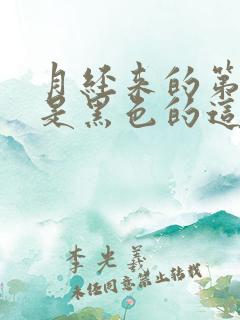 月经来的第
是黑色的這
李光羲
未经同意禁止转载